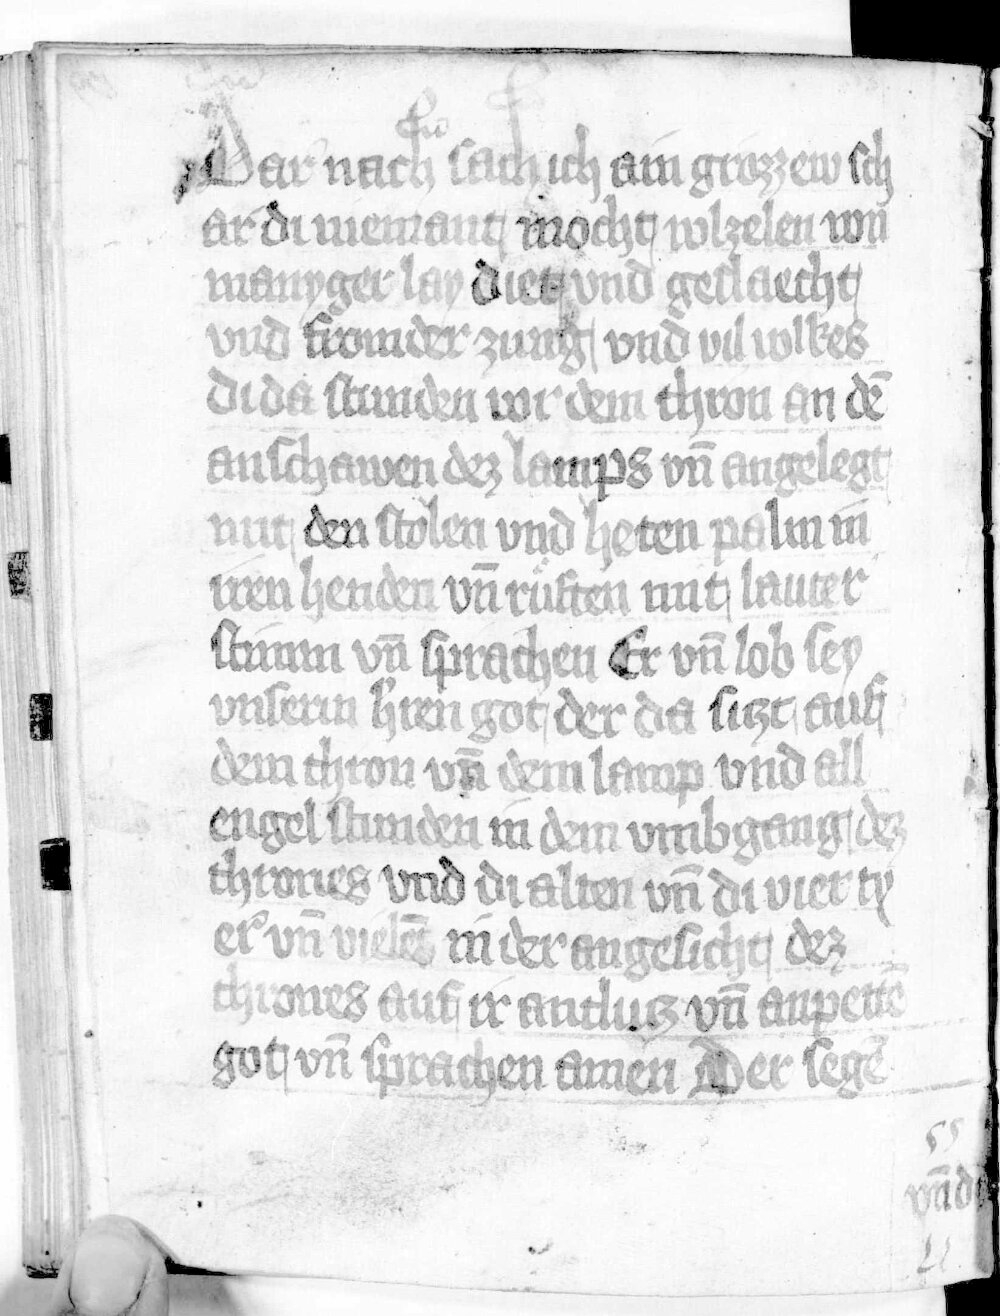 Dar nach sach ich ain grozzew sch
ar di niemant mocht volzelen von
manyger lay diet vnd geslaecht
vnd fromder zung vnd vil volkes
Di da stunden vor dem thron an dē
anschawen dez lamps vn̄ angelegt
mit den stolen vnd heten palm in
iren henden vn̄ rüften mit lauter
stimm vn̄ sprachen Er vn̄ lob sey
vnserm h̕ren got der da sitzt auf
dem thron vn̄ dem lamp vnd all
engel stunden in dem vmbgang dez
thrones vnd di alten vn̄ di vier ty
er vn̄ vielē in der angesicht dez
thrones auf ir antlutz vn̄ anpettē
got vn̄ sprachen amen Der segē
vn̄ d